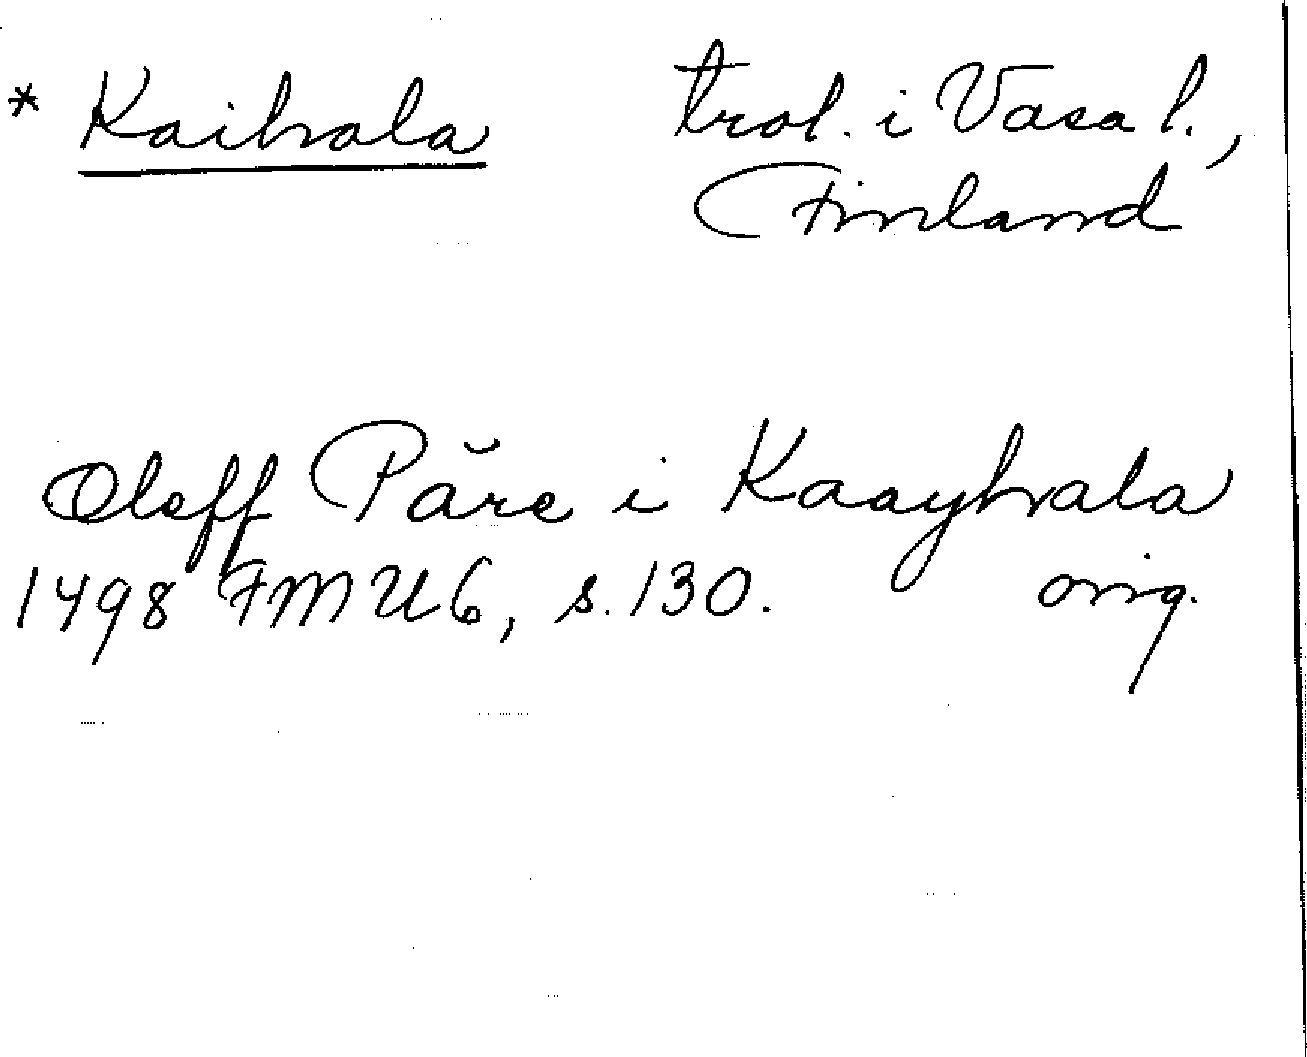 * Kaihala trol. i Vasa l.,
Finland
Oleff Păre i Kaayhala
1498 FMU 6, s. 130. orig.